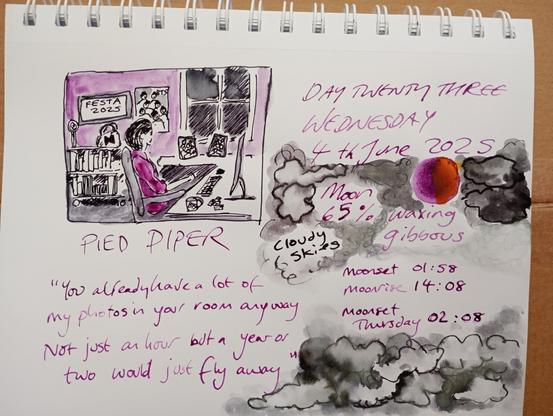 FESTA
2025
BTS
PIED PIPER
"You already have a lot of
my photos in your room anyway
Not just an hour but a year or
two would just fly away"
DAY TWENTY THREE
WEDNESDAY
4th June 2025
Moon
65% waxing
gibbous
Cloudy
Skies
moonset 01:58
moonrise 14:08
moonset
Thursday 02:08